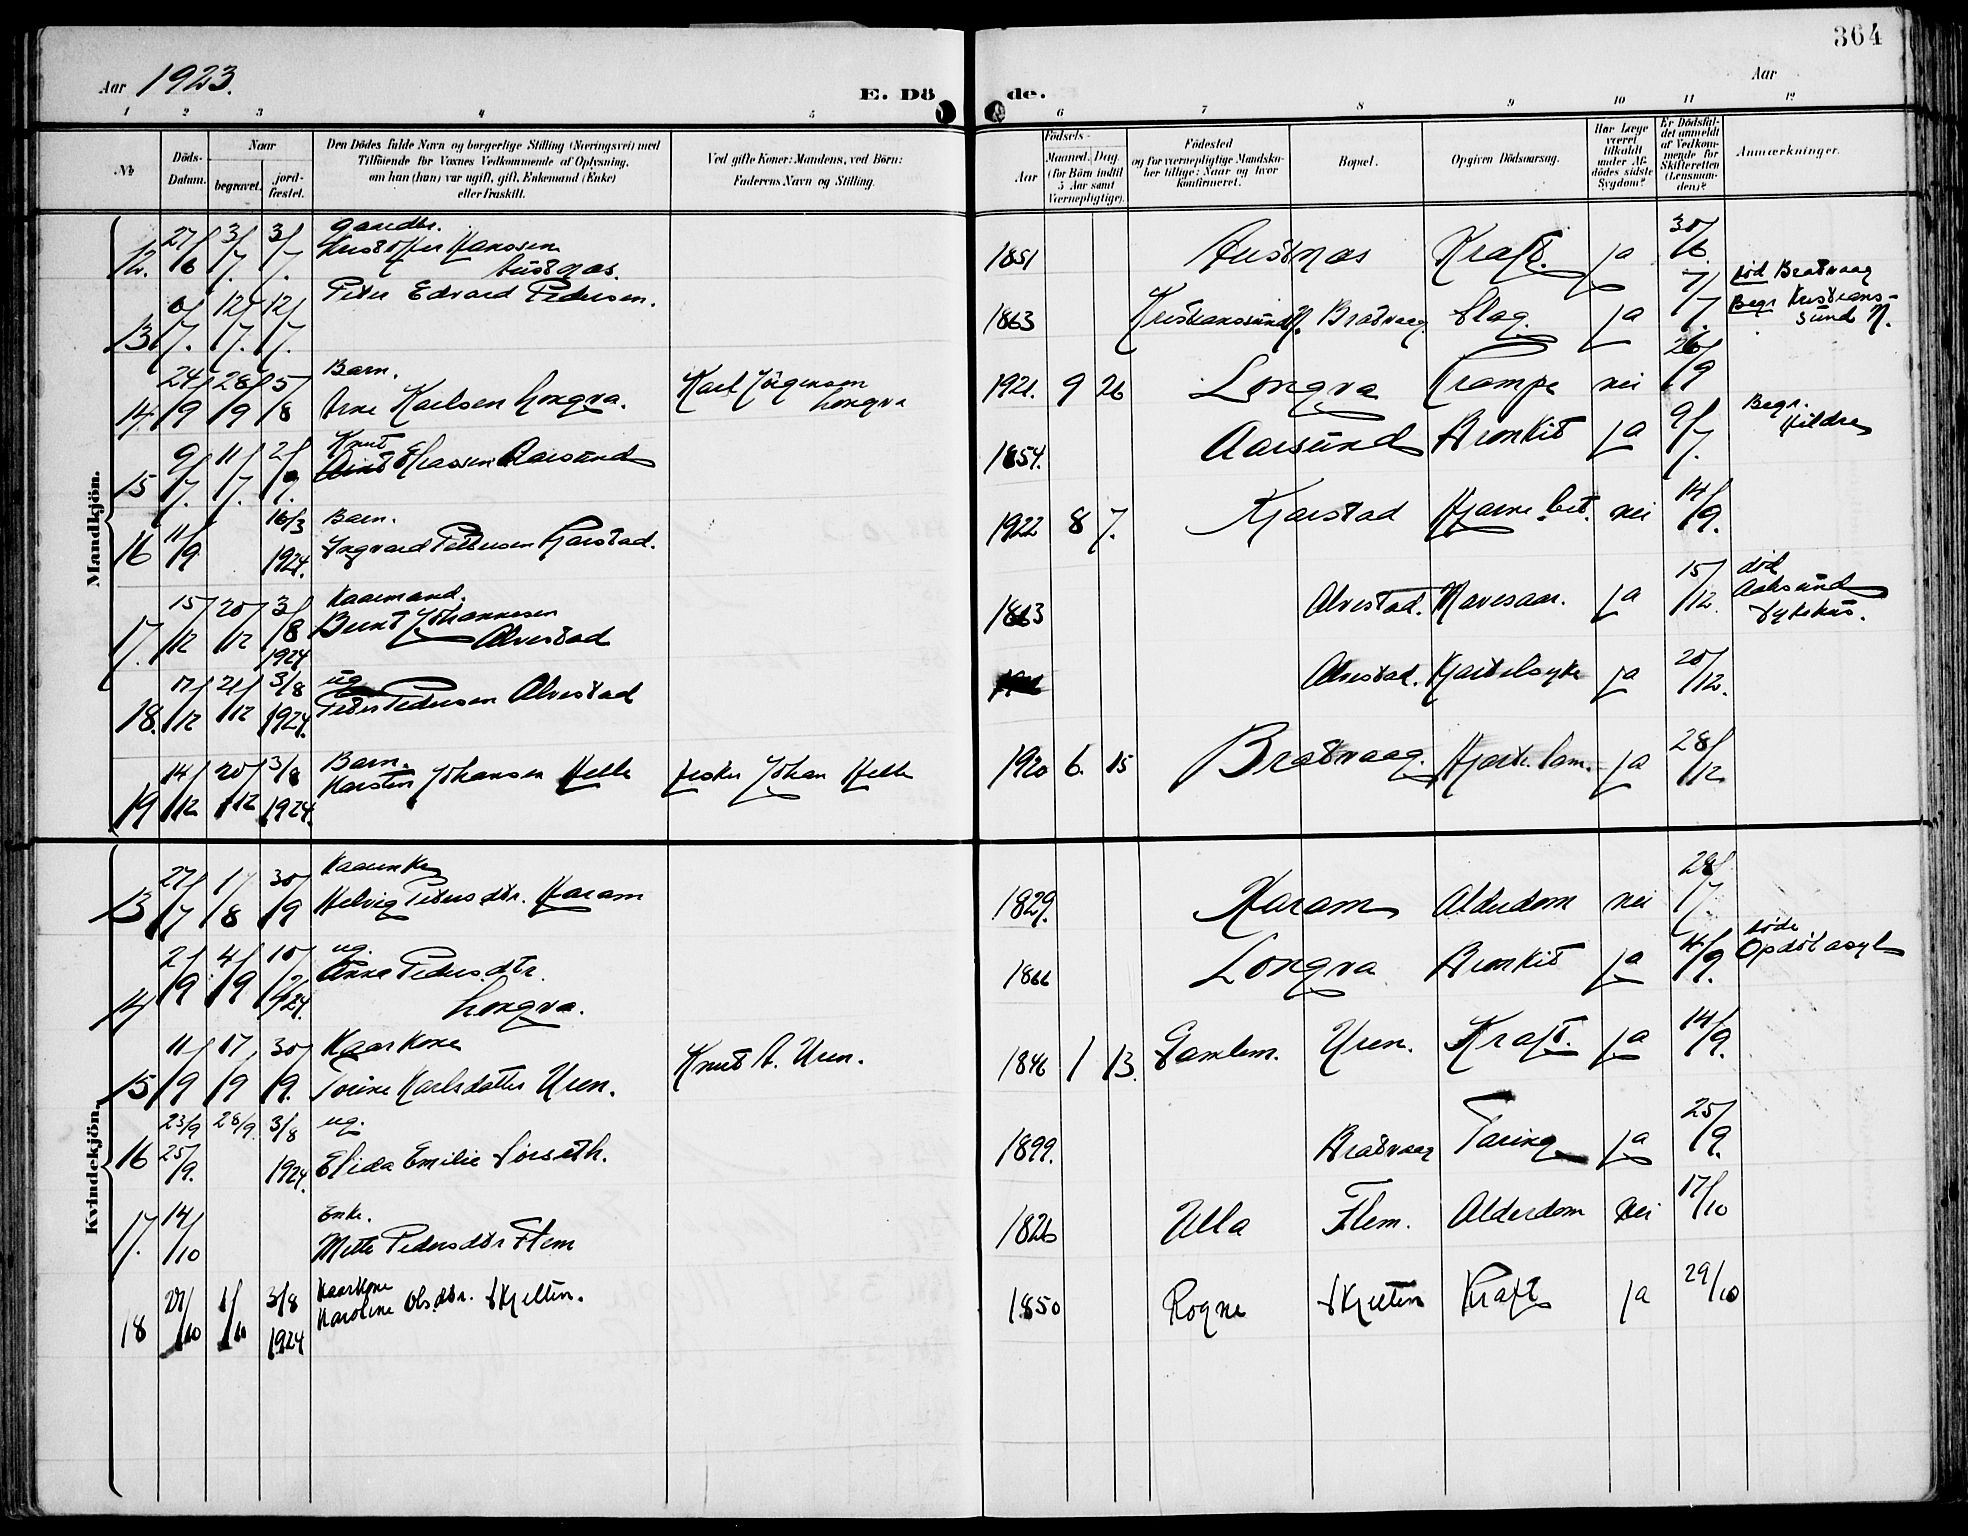 364
Aar 1923.
E. Dö
de.
Aar
1 2 3 4 5
6 7 8 9 10 11 12
No
Döds-Datum.
Naar
begravet.
jord-fæstet.
Den Dödes fulde Navn og borgerlige Stilling (Næringsvei) med
Tilföiende for Voxnes Vedkommende af Oplysning,
om han (hun) var ugift, gift, Enkemand (Enke)
eller fraskilt.
Ved gifte Koner: Mandens, ved Börn:
Faderens Navn og Stilling.
Födsels-
Aar
Maaned. Dag
(for Börn indtil
5 Aar samt
Værnepligtige).
Födested
og for værnepligtige Mandska-
ber tillige: Naar og hvor
konfirmeret.
Bopæl.
Opgiven Dödsaarsag.
Har Læge
været
tilkaldt
under Af-
dödes sidste
Sygdom?
Er Dödsfal-
det anmeldt
af Vedkom-
mende for
Skifteretten
(Lensman-
den)?
Anmærkninger.
Mandkjön.
12. 27/6 3/7. 3/7. Gaardbr. Kristoffer Hanssen Austnes. 1851 Austnes Kraft. ja 30/6.
13 6/7. 12/7. 12/7. Peter Edvard Pedersen. 1863 Kristiansund N. Bratvaag. Slag. ja 7/7. død Bratvaag
Begr Kristians-
sund N.
14 24/9 28/9 5/8 Barn. Arne Karlsen Longva. Karl Jörgensen Longva 1921. 9 26 Longva Krampe nei 26/9
15 9/7. 11/7. 2/9. Knut Aarsund 1854. Aarsund Bronkit ja 9/7. Begr. Hildre
16 11/9 16/3 1924. Barn. Ingvard Pettersen Kjærstad. 1922 8 7. Kjærstad Hjærne bet. nei 14/9.
17. 15/12 20/12 3/8 1924 Kaarmand. Bernt Johannesen Alvestad 1863 Alvestad. ja 15/12. død
Aalesund
Sykehus.
18. 17/12 21/12 3/8 1924. ug Peter Pedersen Alvestad Alvestad. Hjertelsyke ja 20/12.
19 14/12 20/12 3/8 1924. Barn. Karsten Johansen Helle Fisker Johan Helle 1920 6. 15 Bratvaag. Hjerte lam. ja 28/12
Kvindekjön.
13 27/7 1/8 30/9 Kaarenke Helvig Petersdtr. Haram 1829. Haram Alderdom nei 28/7
14 2/9 4/9 10/2/24. ug. Anna Pedersdtr. Longva. 1866 Longva Bronkit ja 4/9. døde
Opdøl asyl
15 11/9 17/9 30/9. Kaarkone Torine Karlsdatter Uren. Knut A. Uren. 1846 1 13. Gamlem. Uren. Kraft. ja 14/9.
16 23/9 25/9. 28/9. 3/8 1924. ug. Elida Emilie Sörseth. 1899. Bratvaag Tæring ja 25/9.
17. 14/10 Enke. Mette Pedersdtr Flem 1826 Ulla Flem. Alderdom nei 17/10
18 27/10 1/10 3/8 1924 Kaarkone Karoline Olsdtr. Skjelten. 1850 Rogne Skjelten Kraft ja 29/10